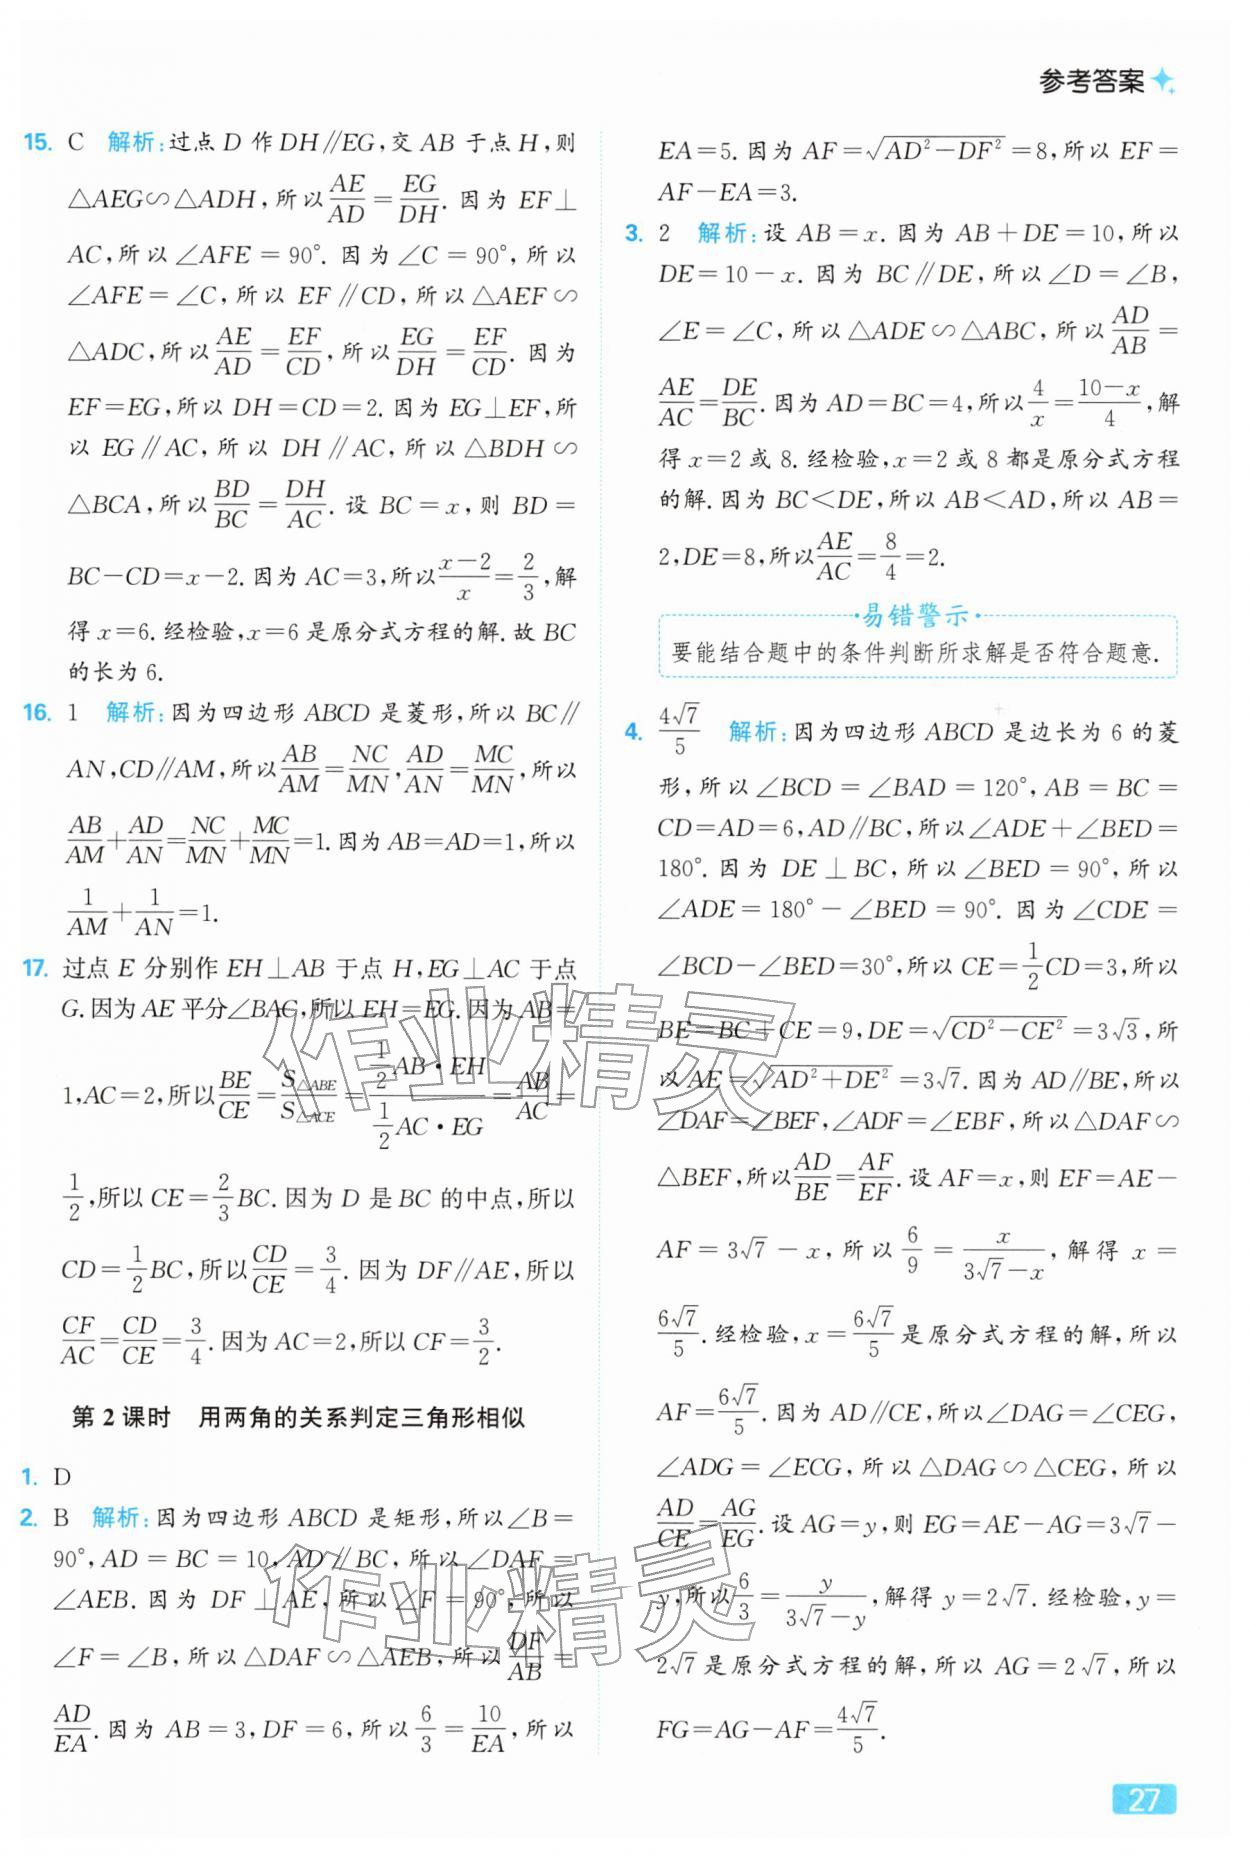 参考答案
15. C 解析:过点 D 作 DH∥EG,交 AB 于点 H,则
△AEG∽△ADH,所以 AE/AD = EG/DH. 因为 EF⊥
AC,所以∠AFE = 90°. 因为∠C = 90°,所以
∠AFE = ∠C,所以 EF∥CD,所以△AEF∽
△ADC,所以 AE/AD = EF/CD,所以 EG/DH = EF/CD. 因为
EF=EG,所以 DH=CD=2. 因为 EG⊥EF,所
以 EG∥AC,所以 DH∥AC,所以△BDH∽
△BCA,所以 BD/BC = DH/AC. 设 BC=x,则 BD=
BC−CD=x−2. 因为 AC=3,所以 (x−2)/x = 2/3,解
得 x=6. 经检验,x=6 是原分式方程的解. 故 BC
的长为 6.
16. 1 解析:因为四边形 ABCD 是菱形,所以 BC∥
AN,CD∥AM,所以 AB/AM = NC/MN, AD/AN = MC/MN,所以
AB/AM + AD/AN = NC/MN + MC/MN =1. 因为 AB=AD=1,所以
1/AM + 1/AN =1.
17. 过点 E 分别作 EH⊥AB 于点 H,EG⊥AC 于点
G. 因为 AE 平分∠BAC,所以 EH=EG. 因为 AB=
1,AC=2,所以 BE/CE = S△ABE/S△ACE = (1/2 AB·EH)/(1/2 AC·EG) = AB/AC =
1/2,所以 CE= 2/3 BC. 因为 D 是 BC 的中点,所以
CD= 1/2 BC,所以 CD/CE = 3/4. 因为 DF∥AE,所以
CF/AC = CD/CE = 3/4. 因为 AC=2,所以 CF= 3/2.
第 2 课时 用两角的关系判定三角形相似
1. D
2. B 解析:因为四边形 ABCD 是矩形,所以∠B=
90°,AD = BC = 10,AD∥BC,所以∠DAF =
∠AEB. 因为 DF⊥AE,所以∠F = 90°,所以
∠F = ∠B,所以△DAF∽△AEB,所以 DF/AB =
AD/EA. 因为 AB=3,DF=6,所以 6/3 = 10/EA,所以
EA=5. 因为 AF=√(AD²−DF²)=8,所以 EF=
AF−EA=3.
3. 2 解析:设 AB=x. 因为 AB+DE=10,所以
DE=10−x. 因为 BC∥DE,所以∠D=∠B,
∠E=∠C,所以△ADE∽△ABC,所以 AD/AB =
AE/AC = DE/BC. 因为 AD=BC=4,所以 4/x = (10−x)/4,解
得 x=2 或 8. 经检验,x=2 或 8 都是原分式方程
的解. 因为 BC<DE,所以 AB<AD,所以 AB=
2,DE=8,所以 AE/AC = 8/4 =2.
·易错警示·
要能结合题中的条件判断所求解是否符合题意.
4. 4√7/5 解析:因为四边形 ABCD 是边长为 6 的菱
形,所以∠BCD = ∠BAD = 120°,AB = BC =
CD=AD=6,AD∥BC,所以∠ADE+∠BED=
180°. 因为 DE⊥BC,所以∠BED = 90°,所以
∠ADE = 180° − ∠BED = 90°. 因为∠CDE =
∠BCD−∠BED=30°,所以 CE= 1/2 CD=3,所以
BE=BC+CE=9,DE=√(CD²−CE²)=3√3,所
以 AE=√(AD²+DE²)=3√7. 因为 AD∥BE,所以
∠DAF=∠BEF,∠ADF=∠EBF,所以△DAF∽
△BEF,所以 AD/BE = AF/EF. 设 AF=x,则 EF=AE−
AF = 3√7 − x,所以 6/9 = x/(3√7−x),解得 x =
6√7/5. 经检验,x= 6√7/5 是原分式方程的解,所以
AF= 6√7/5. 因为 AD∥CE,所以∠DAG=∠CEG,
∠ADG=∠ECG,所以△DAG∽△CEG,所以
AD/CE = AG/EG. 设 AG=y,则 EG=AE−AG=3√7−
y,所以 6/3 = y/(3√7−y),解得 y=2√7. 经检验,y=
2√7 是原分式方程的解,所以 AG=2√7,所以
FG=AG−AF= 4√7/5.
作业精灵
作业精灵
27